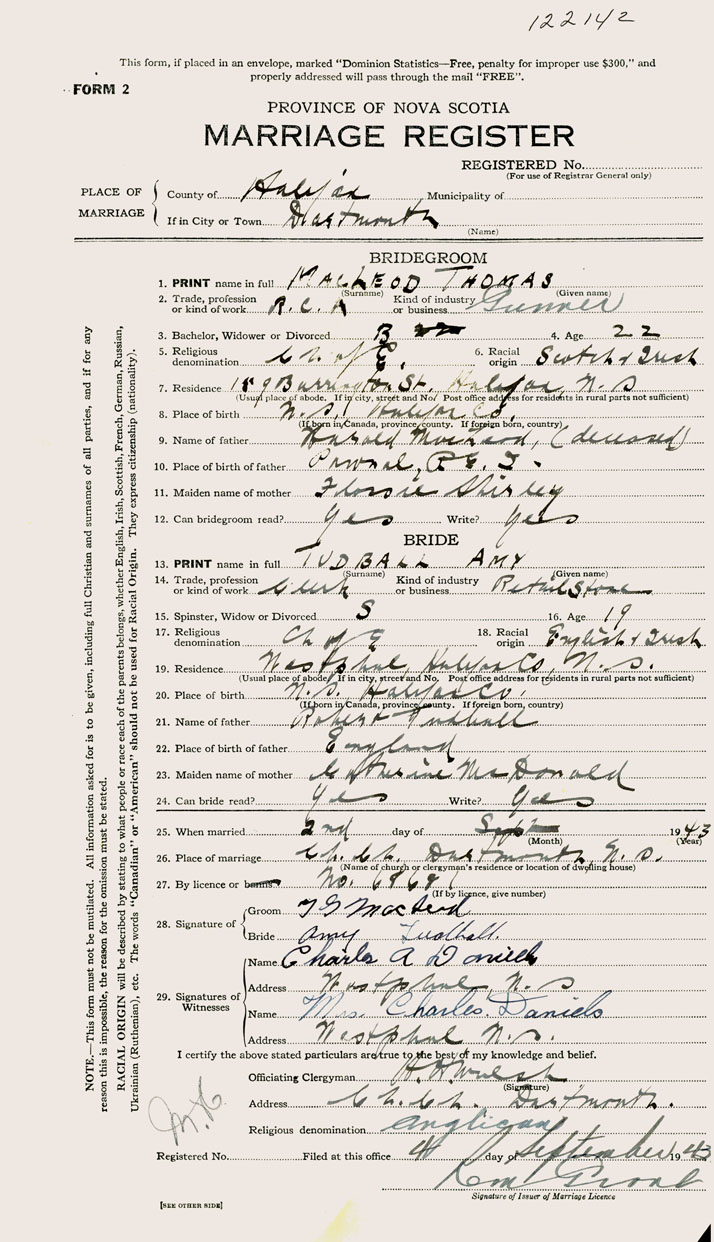 122142
This form, if placed in an envelope, marked "Dominion Statistics—Free, penalty for improper use $300," and
properly addressed will pass through the mail "FREE".
FORM 2
PROVINCE OF NOVA SCOTIA
MARRIAGE REGISTER
REGISTERED No.
(For use of Registrar General only)
PLACE OF MARRIAGE
County of Halifax Municipality of
If in City or Town Dartmouth
(Name)
BRIDEGROOM
1. PRINT name in full MACLEOD THOMAS
(Surname) (Given name)
2. Trade, profession or kind of work R.C.A Kind of industry or business Gunner
3. Bachelor, Widower or Divorced B 4. Age 22
5. Religious denomination Ch. of E. 6. Racial origin Scotch & Irish
7. Residence 189 Barrington St. Halifax, N.S
(Usual place of abode. If in city, street and No. Post office address for residents in rural parts not sufficient)
8. Place of birth N.S. Halifax Co.
(If born in Canada, province, county. If foreign born, country)
9. Name of father Harold MacLeod, (deceased)
10. Place of birth of father Pownal, P.E.I.
11. Maiden name of mother Flossie Shirley
12. Can bridegroom read? Yes Write? Yes
BRIDE
13. PRINT name in full TUDBALL AMY
(Surname) (Given name)
14. Trade, profession or kind of work Clerk Kind of industry or business Retail Store
15. Spinster, Widow or Divorced S 16. Age 19
17. Religious denomination Ch of E 18. Racial origin English & Irish
19. Residence Westphal, Halifax Co, N.S.
(Usual place of abode. If in city, street and No. Post office address for residents in rural parts not sufficient)
20. Place of birth N.S. Halifax Co.
(If born in Canada, province, county. If foreign born, country)
21. Name of father Robert Tudball
22. Place of birth of father England
23. Maiden name of mother Catherine McDonald
24. Can bride read? Yes Write? Yes
25. When married 2nd day of Sept 1943
(Month) (Year)
26. Place of marriage Ch. Ch. Dartmouth N.S.
(Name of church or clergyman's residence or location of dwelling house)
27. By licence or banns No. 6969
(If by licence, give number)
28. Signature of
Groom T G MacLeod
Bride Amy Tudball.
29. Signatures of Witnesses
Name Charles A Daniels
Address Westphal, N.S
Name Mrs. Charles Daniels
Address Westphal N.S.
I certify the above stated particulars are true to the best of my knowledge and belief.
Officiating Clergyman
(Signature)
Address Ch. Ch. Dartmouth.
Religious denomination Anglican
Registered No. Filed at this office 4th day of September 1943
Signature of Issuer of Marriage Licence
[SEE OTHER SIDE]
NOTE.—This form must not be mutilated. All information asked for is to be given, including full Christian and surnames of all parties, and if for any
reason this is impossible, the reason for the omission must be stated.
RACIAL ORIGIN will be described by stating to what people or race each of the parents belongs, whether English, Irish, Scottish, French, German, Russian,
Ukrainian (Ruthenian), etc. The words "Canadian" or "American" should not be used for Racial Origin. They express citizenship (nationality).